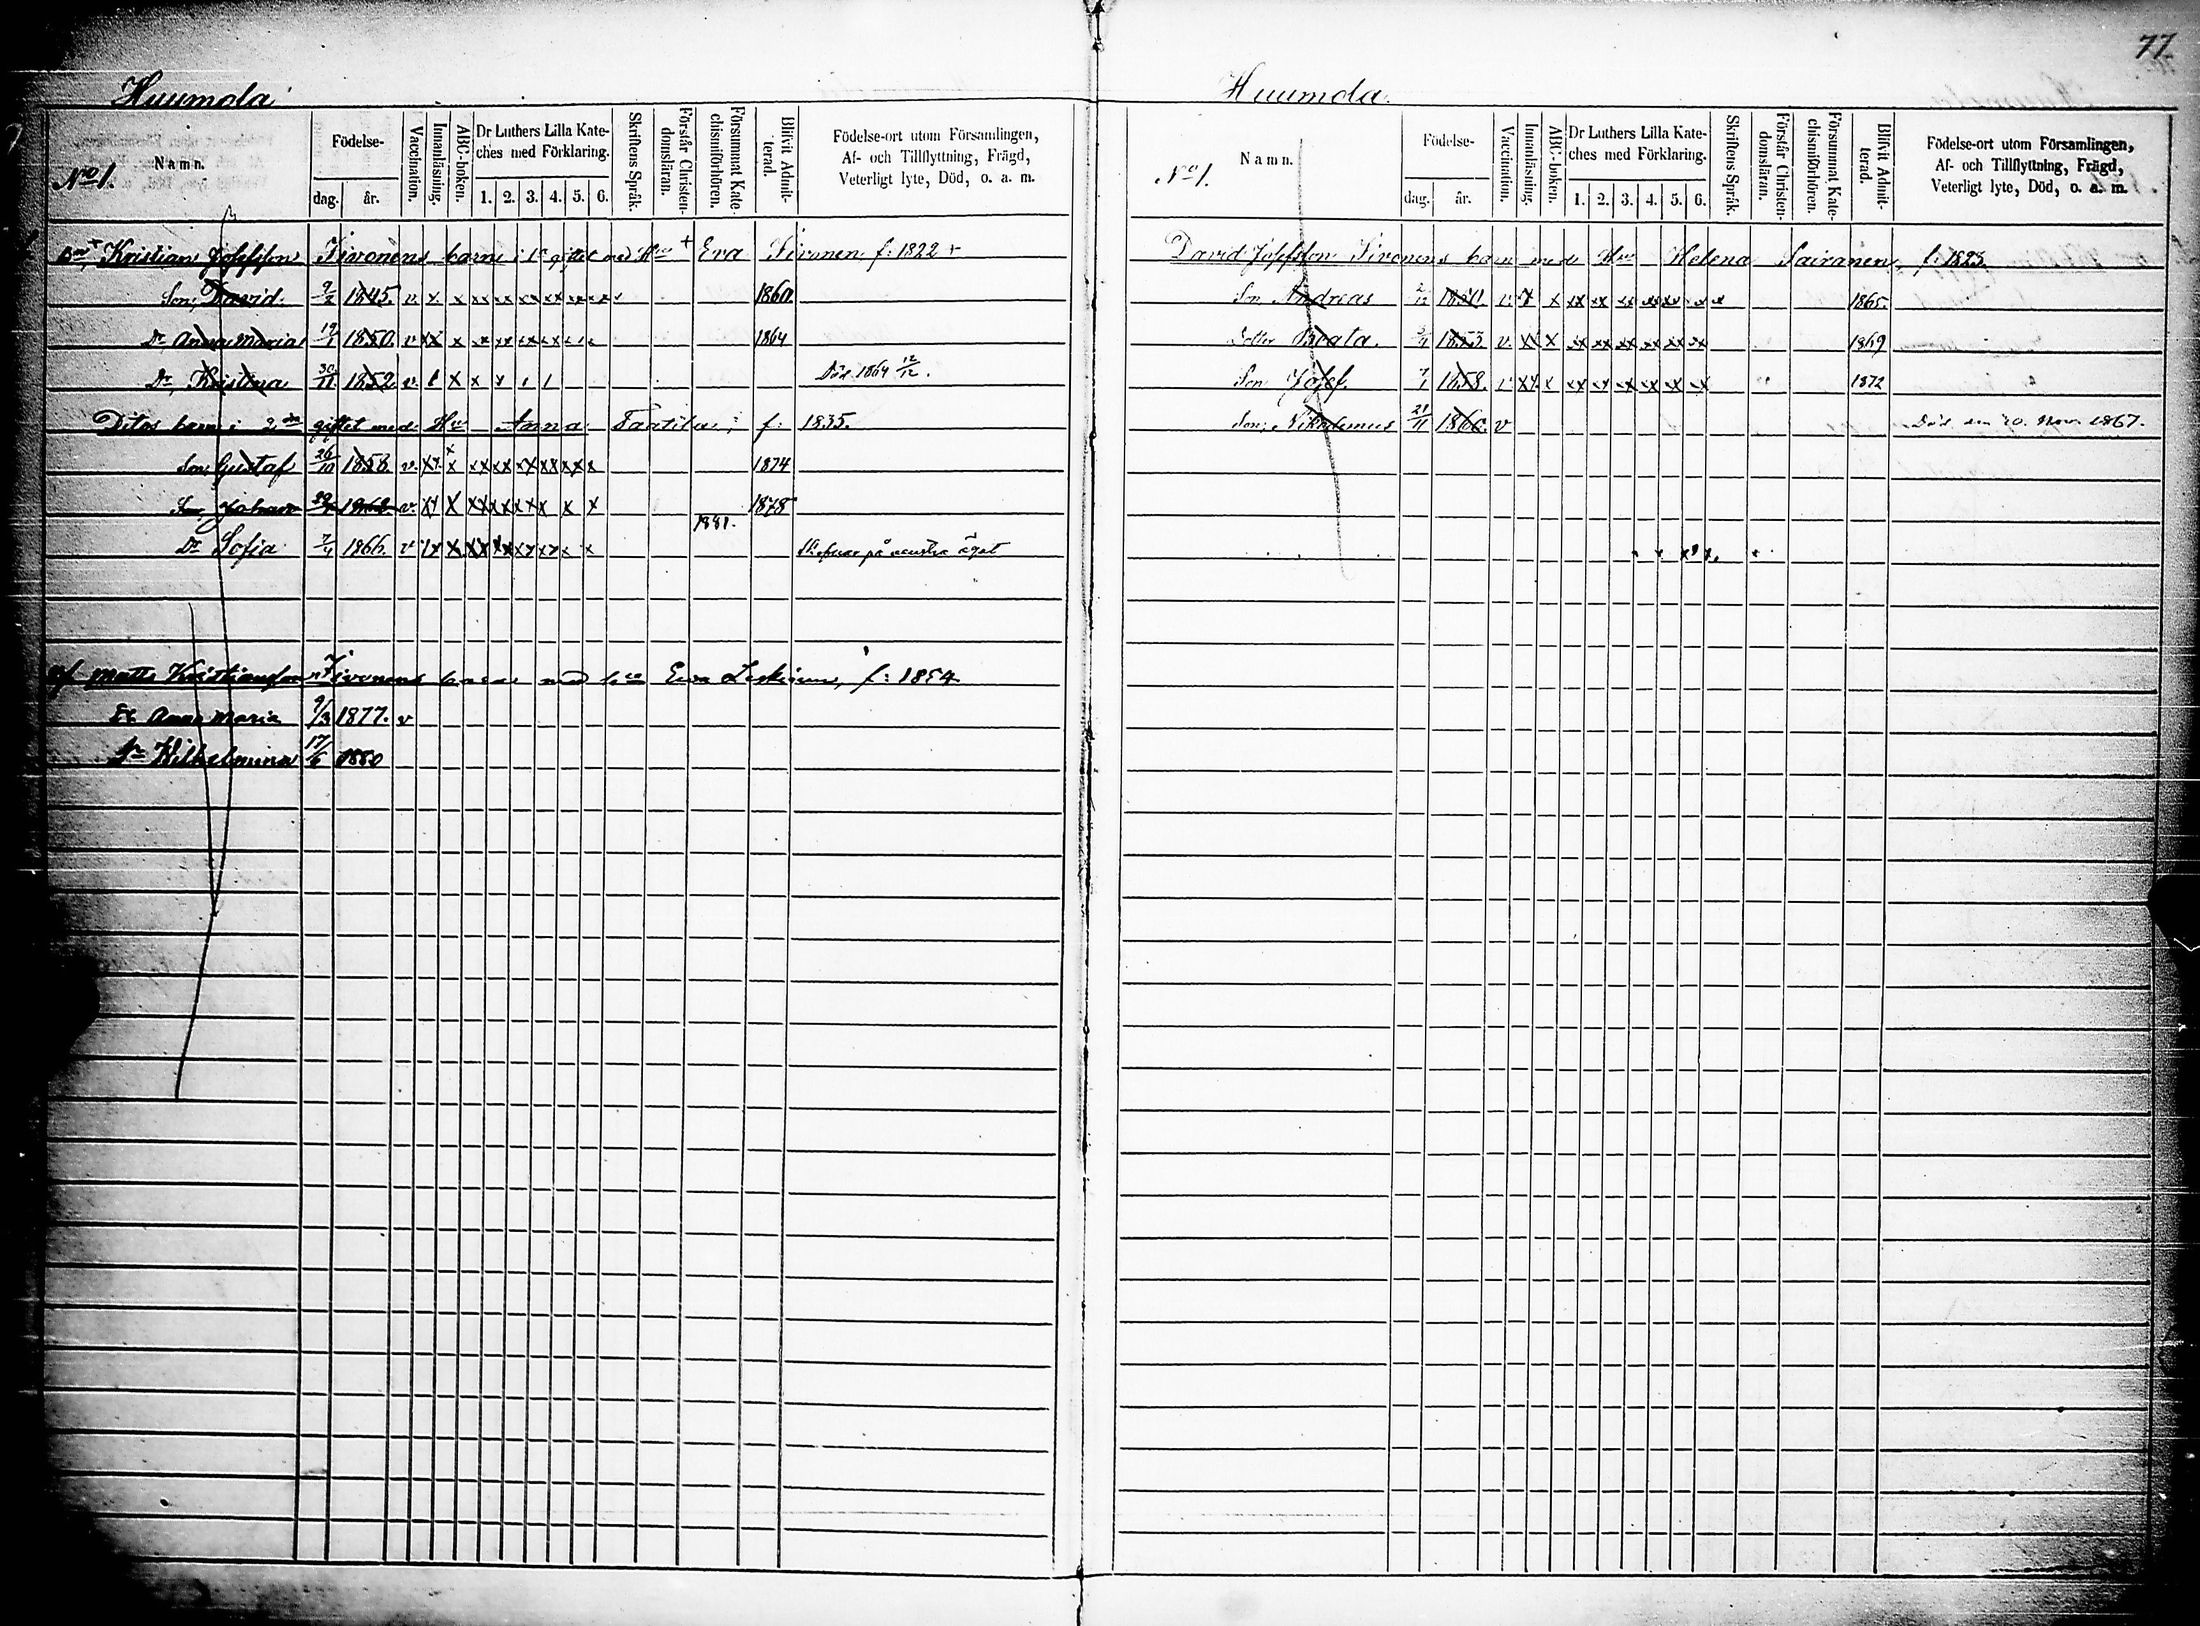 77.
Huumola
No 1.
Namn.
Födelse-
dag. år.
Vaccination.
Innanläsning.
ABC-boken.
Dr Luthers Lilla Kate-
ches med Förklaring.
1. 2. 3. 4. 5. 6.
Skriftens Språk.
Förstår Christen-
domsläran.
Försummat Kate-
chismiförhören.
Blifvit Admit-
terad.
Födelse-ort utom Församlingen,
Af- och Tillflyttning, Frägd,
Veterligt lyte, Död, o. a. m.
+ Kristian Josefsson Sivonens barn i 1a giftet med Hu + Eva Sivonen f: 1822 +
Son, David. 9/2 1845. v. x x xx xx xx xx xx xx 1860.
Dr, Anna Maria 19/1 1850. v xx x x xx xx xx 1864
Dr, Kristina 30/11 1852. v x x x Död 1864 12/12.
Ditos barn i 2dra giftet med Hu Anna Taatila, f: 1835.
Son, Gustaf 26/10 1858. v. xx x xx xx xx xx xx x 1874
Son, Johan 1862 v. xx x xx xx xx x x x 1878
1881.
Dr Sofia 7/4 1866. v xx xx xx xx xx x x på venstra ögat
Matts Kristiansson Sivonens barn med hu Eva f: 1854
Dr Anna Maria 9/3 1877. v
Dr Wilhelmina 17/6 1880
Huumola.
No 1.
Namn.
Födelse-
dag. år.
Vaccination.
Innanläsning.
ABC-boken.
Dr Luthers Lilla Kate-
ches med Förklaring.
1. 2. 3. 4. 5. 6.
Skriftens Språk.
Förstår Christen-
domsläran.
Försummat Kate-
chismiförhören.
Blifvit Admit-
terad.
Födelse-ort utom Församlingen,
Af- och Tillflyttning, Frägd,
Veterligt lyte, Död, o. a. m.
David Josefsson Sivonens barn med Hu Helena Sairanen, f: 1823.
Son Andreas v. x x xx xx xx xx xx x x 1865.
Dotter Beata. 1853 v. xx x xx xx xx xx xx xx 1869
Son Josef. 7/1 1858. v xx x xx xx xx xx xx xx 1872
Son, Nikodemus 21/11 1860. v Död den 20. Nov. 1867.